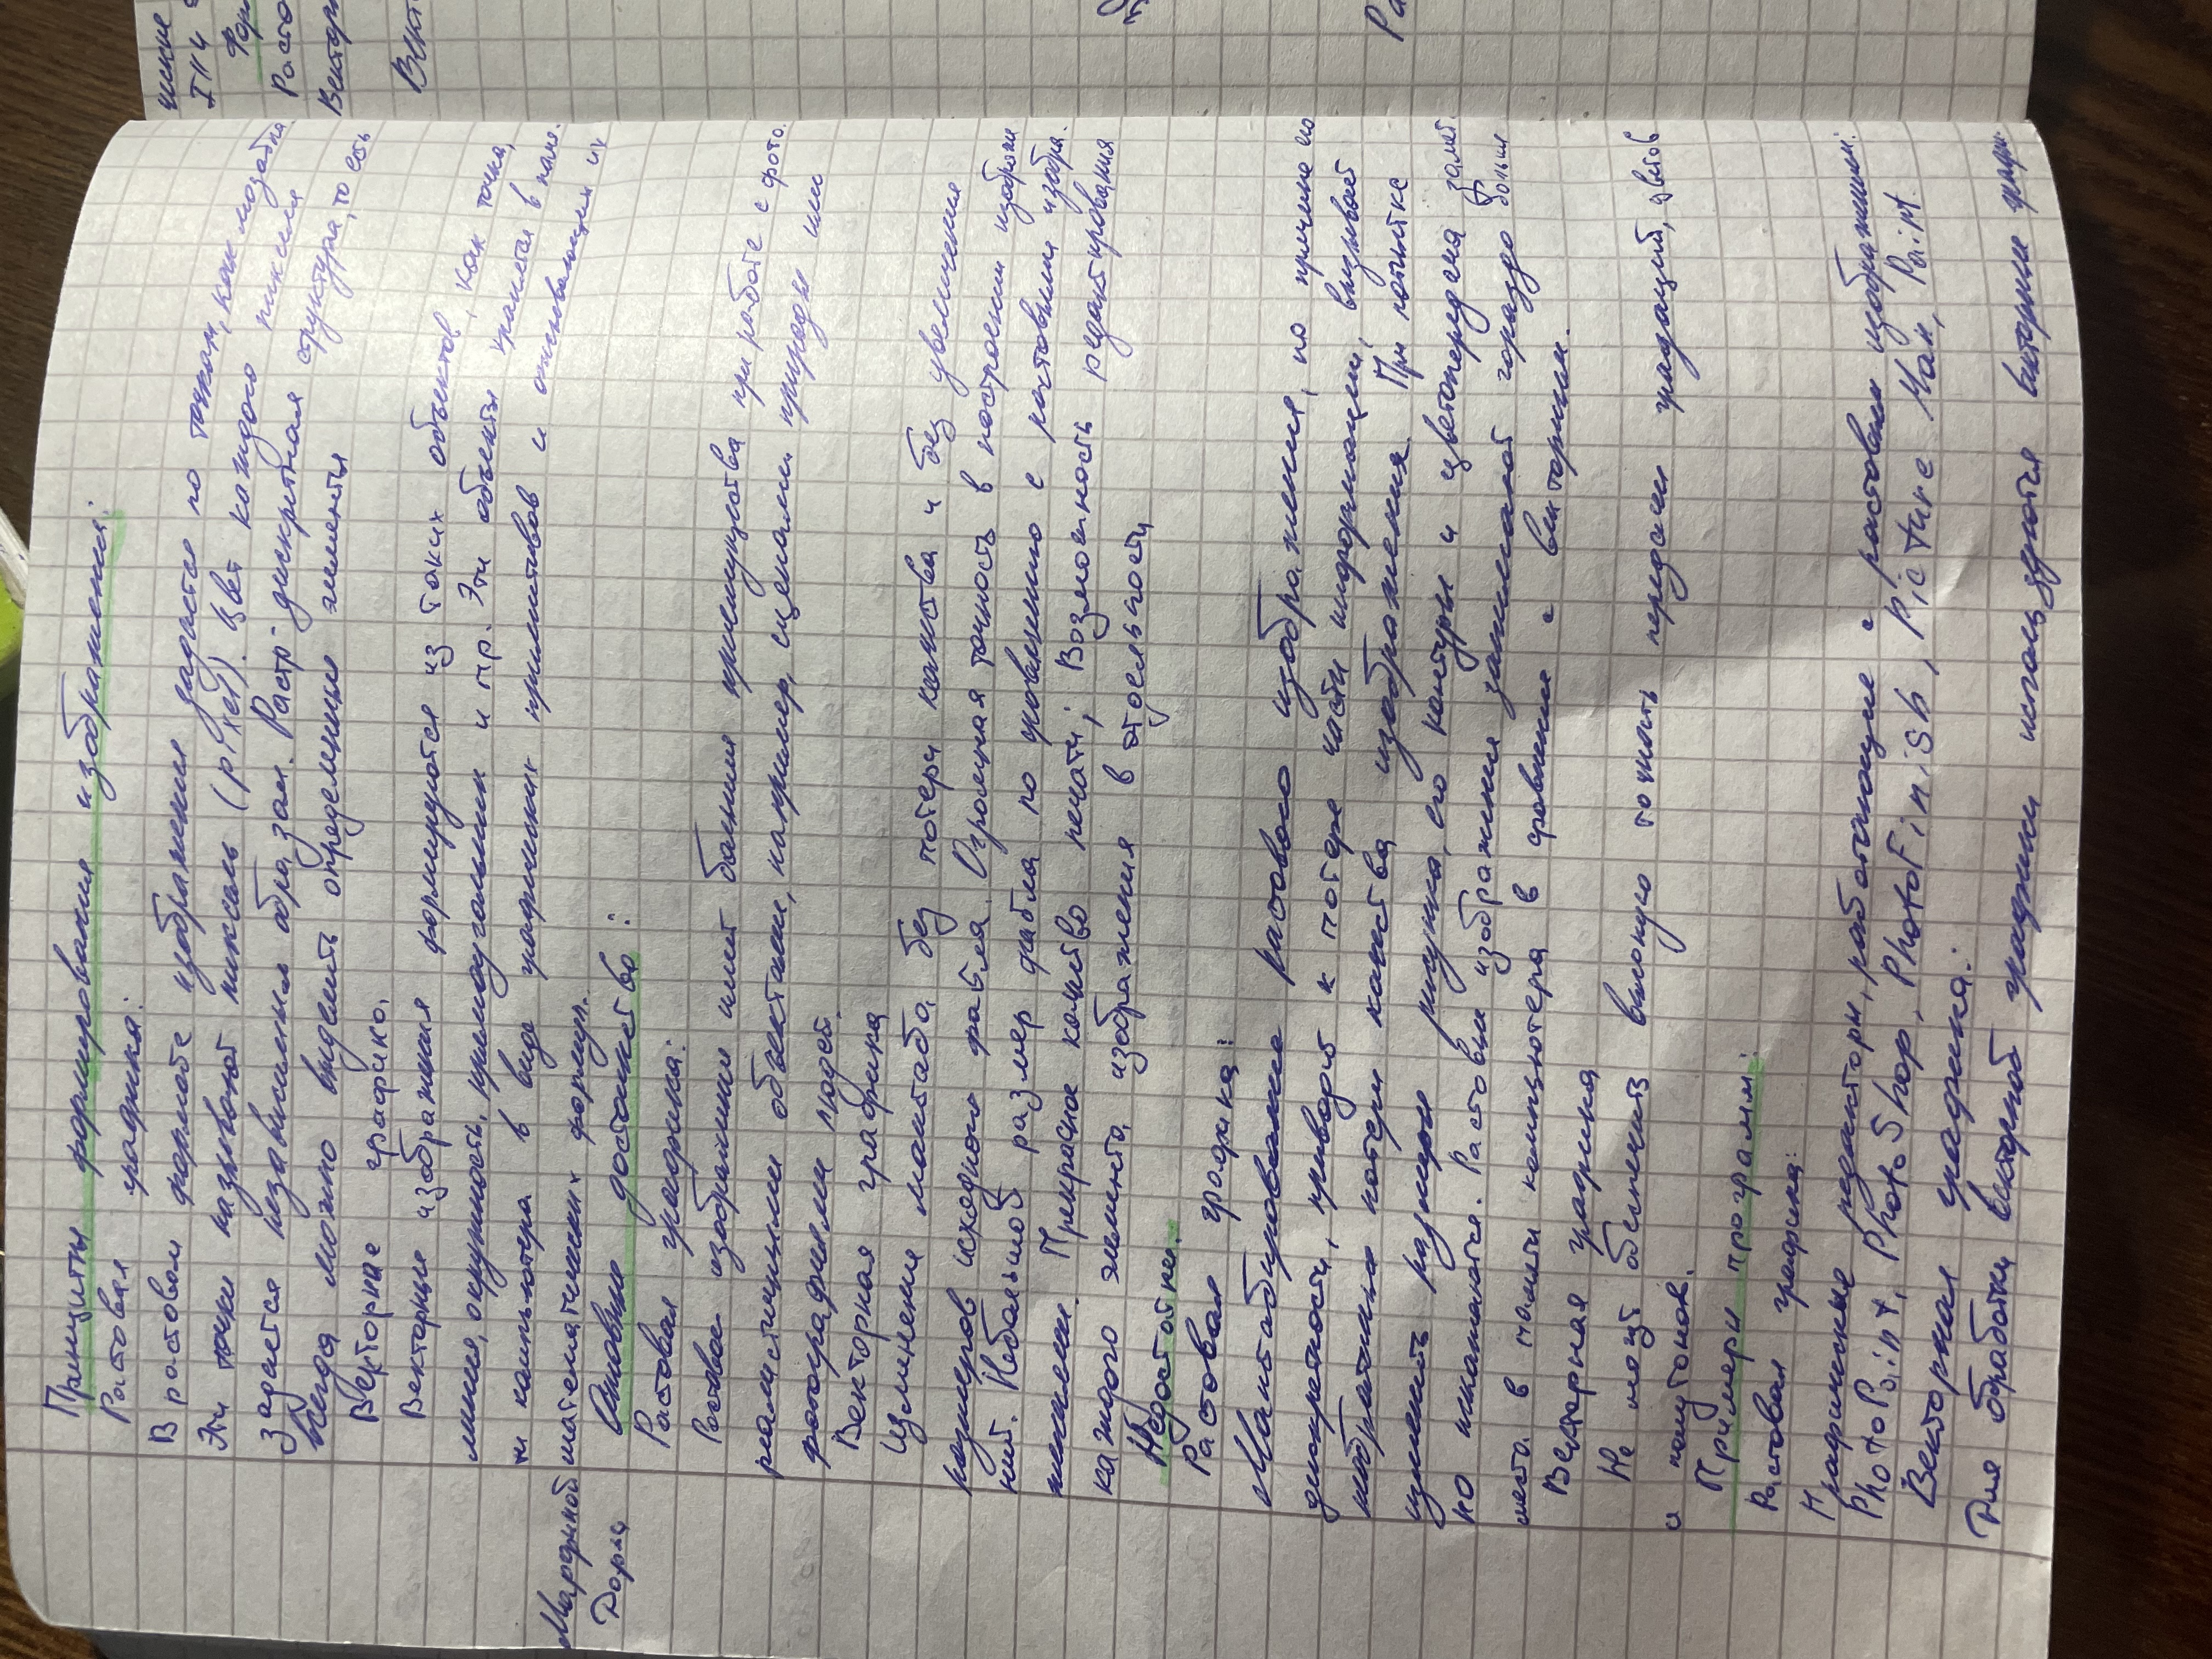 Принципы формирования изображения:
Растовая графика:
В растовом формате изображения задаётся по точкам, как мозайка
Эти точки называют пиксель (pixel). Цвет каждого пикселя
задается независимым образом. Растр-дискретная структура, то есть
всегда можно выделить определенные элементы
Векторная графика.
Векторные изображения формируются из таких объектов, как точка,
линия, окружность, прямоугольник и пр. Эти объекты хранятся в памя-
ти компьютера в виде графических примитивов и описывающих их
математических формул.
Мардиной
Дарья
Основные достоинства:
Растовая графика:
Растовое изображение имеет большие преимущества при работе с фото.
реалистичными объектами, например, сценами природы или
фотографиями людей.
Векторная графика
Изменение масштаба без потери качества и без увеличение
размеров исходного файла. Огромная точность в построении изображе
ний. Небольшой размер файла по сравнению с растовыми изобра.
жениями. Прекрасное качество печати; Возможность редактирования
каждого элемента изображения в отдельности
Недостатки.
Растовая графика:
Масштабирование растового изображения, по причине его
дискретности, приводит к потере части информации, вызывает
необратимые потери качества изображения. При попытке
изменить размеры рисунка, его контуры и цветопередача замет.
но искажаются. Растовые изображения занимают гораздо больше
места в памяти компьютера в сравнение с векторными.
Векторная графика
Не может обеспечить высокую точность передачи градаций, цветов
и полутонов.
Примеры программ:
Растовая графика:
Графические редакторы, работающие с растовыми изображениями:
PhotoPaint, PhotoShop, PhotoFinish, Picture Man, Paint
Векторная графика:
Для обработки векторной графики используются векторные
ческие
Расто
Вектор
Вект
Ра